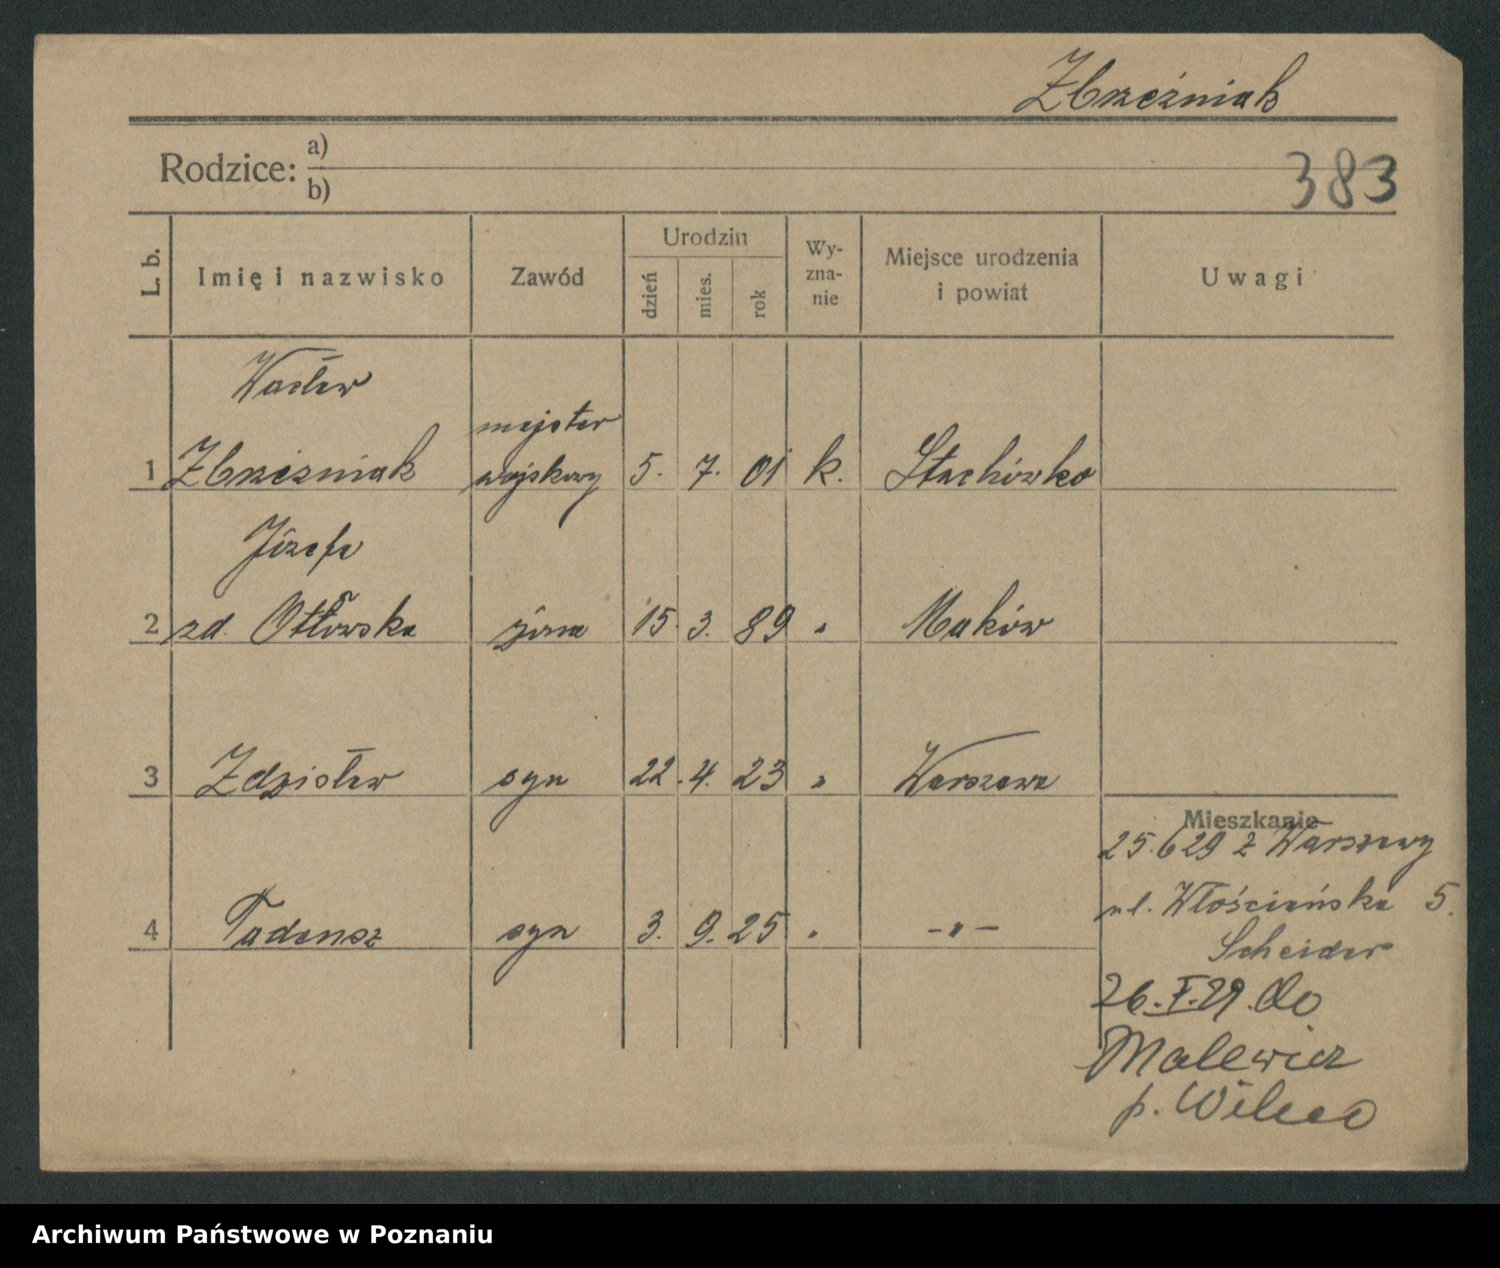 Zbrzeźniak
Rodzice: a)
b)
383
L. b.
Imię i nazwisko
Zawód
Urodzin
dzień
mies.
rok
Wy-
zna-
nie
Miejsce urodzenia
i powiat
Uwagi
Wacław
majster
1 Zbrzeźniak wojskowy 5. 7. 01 k. Stachówka
Józefa
2 zd. Otłowska żona 15. 3. 89 " Maków
3 Zdzisław syn 22. 4. 23 " Warszawa
Mieszkanie
25.6 29 z Warszawy
4 Tadeusz syn 3. 9. 25 " -"-
ul. Włościańska 5.
Scheider
26.X.29. do
Malewicz
p. Wilno
Archiwum Państwowe w Poznaniu